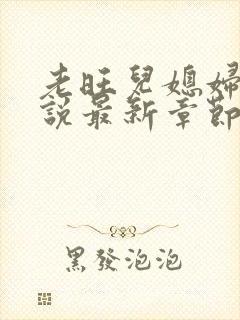 老旺兒媳婦
說最新章節
黑發泡泡